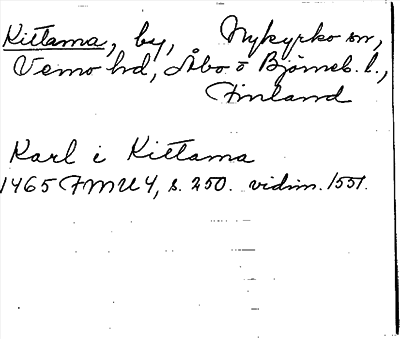 Kittama, by, Nykyrko sn,
Vemo hd, Åbo o Björneb. l.,
Finland
Karl i Kittama
1465 FMU 4, s. 250. vidim. 1551.